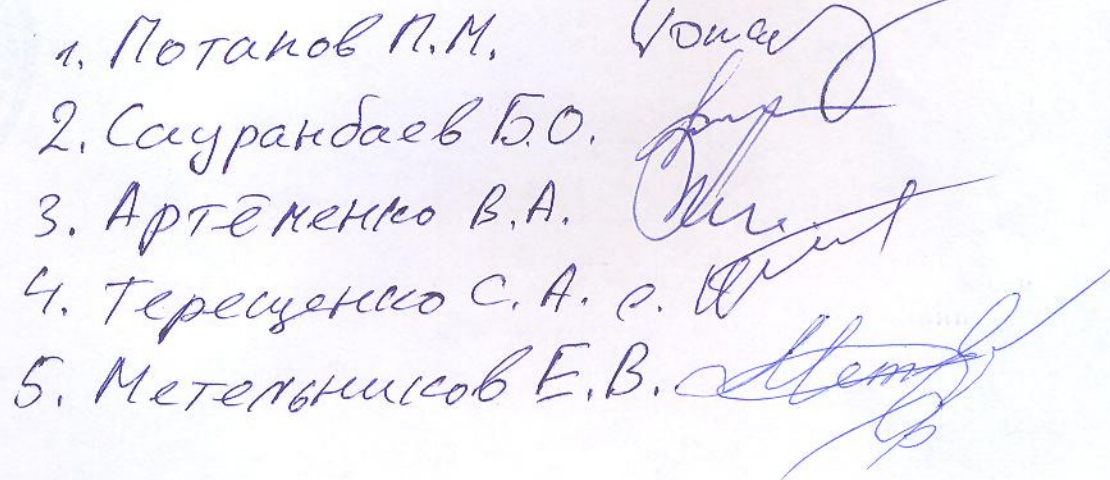 1. Потапов П.М.
2. Сауранбаев Б.О.
3. Артёменко В.А.
4. Терещенко С.А. с.
5. Метельников Е.В.